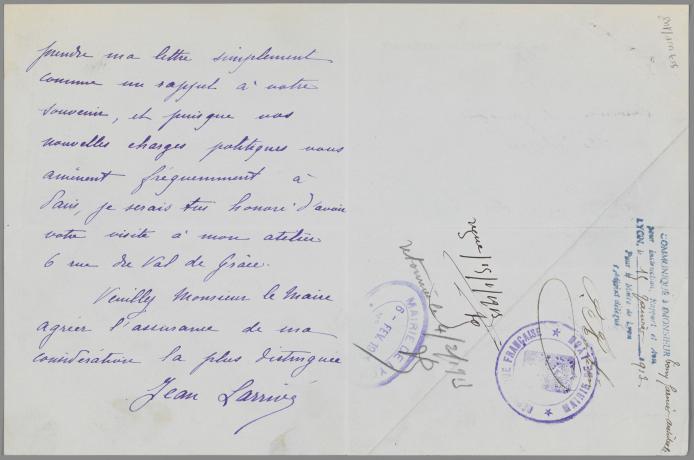 prendre ma lettre simplement
comme un rappel à votre
souvenir, et puisque vos
nouvelles charges politiques vous
amènent fréquemment à
Paris, je serais très honoré d'avoir
votre visite à mon atelier
6 rue du Val de Grâce.
Veuillez Monsieur le Maire
agréer l'assurance de ma
considération la plus distinguée
Jean Larrivé
retourné le 4/2/1913
MAIRIE DE LY
6 - FEV. 19
reçue 15/1/1913
COMMUNIQUÉ à MONSIEUR Tony Garnier architecte
pour instruction, rapport et avis
LYON, le 15 janvier 1913.
Pour le Maire de Lyon
l'Adjoint délégué
FRANÇAISE
MAIRIE DE LYON